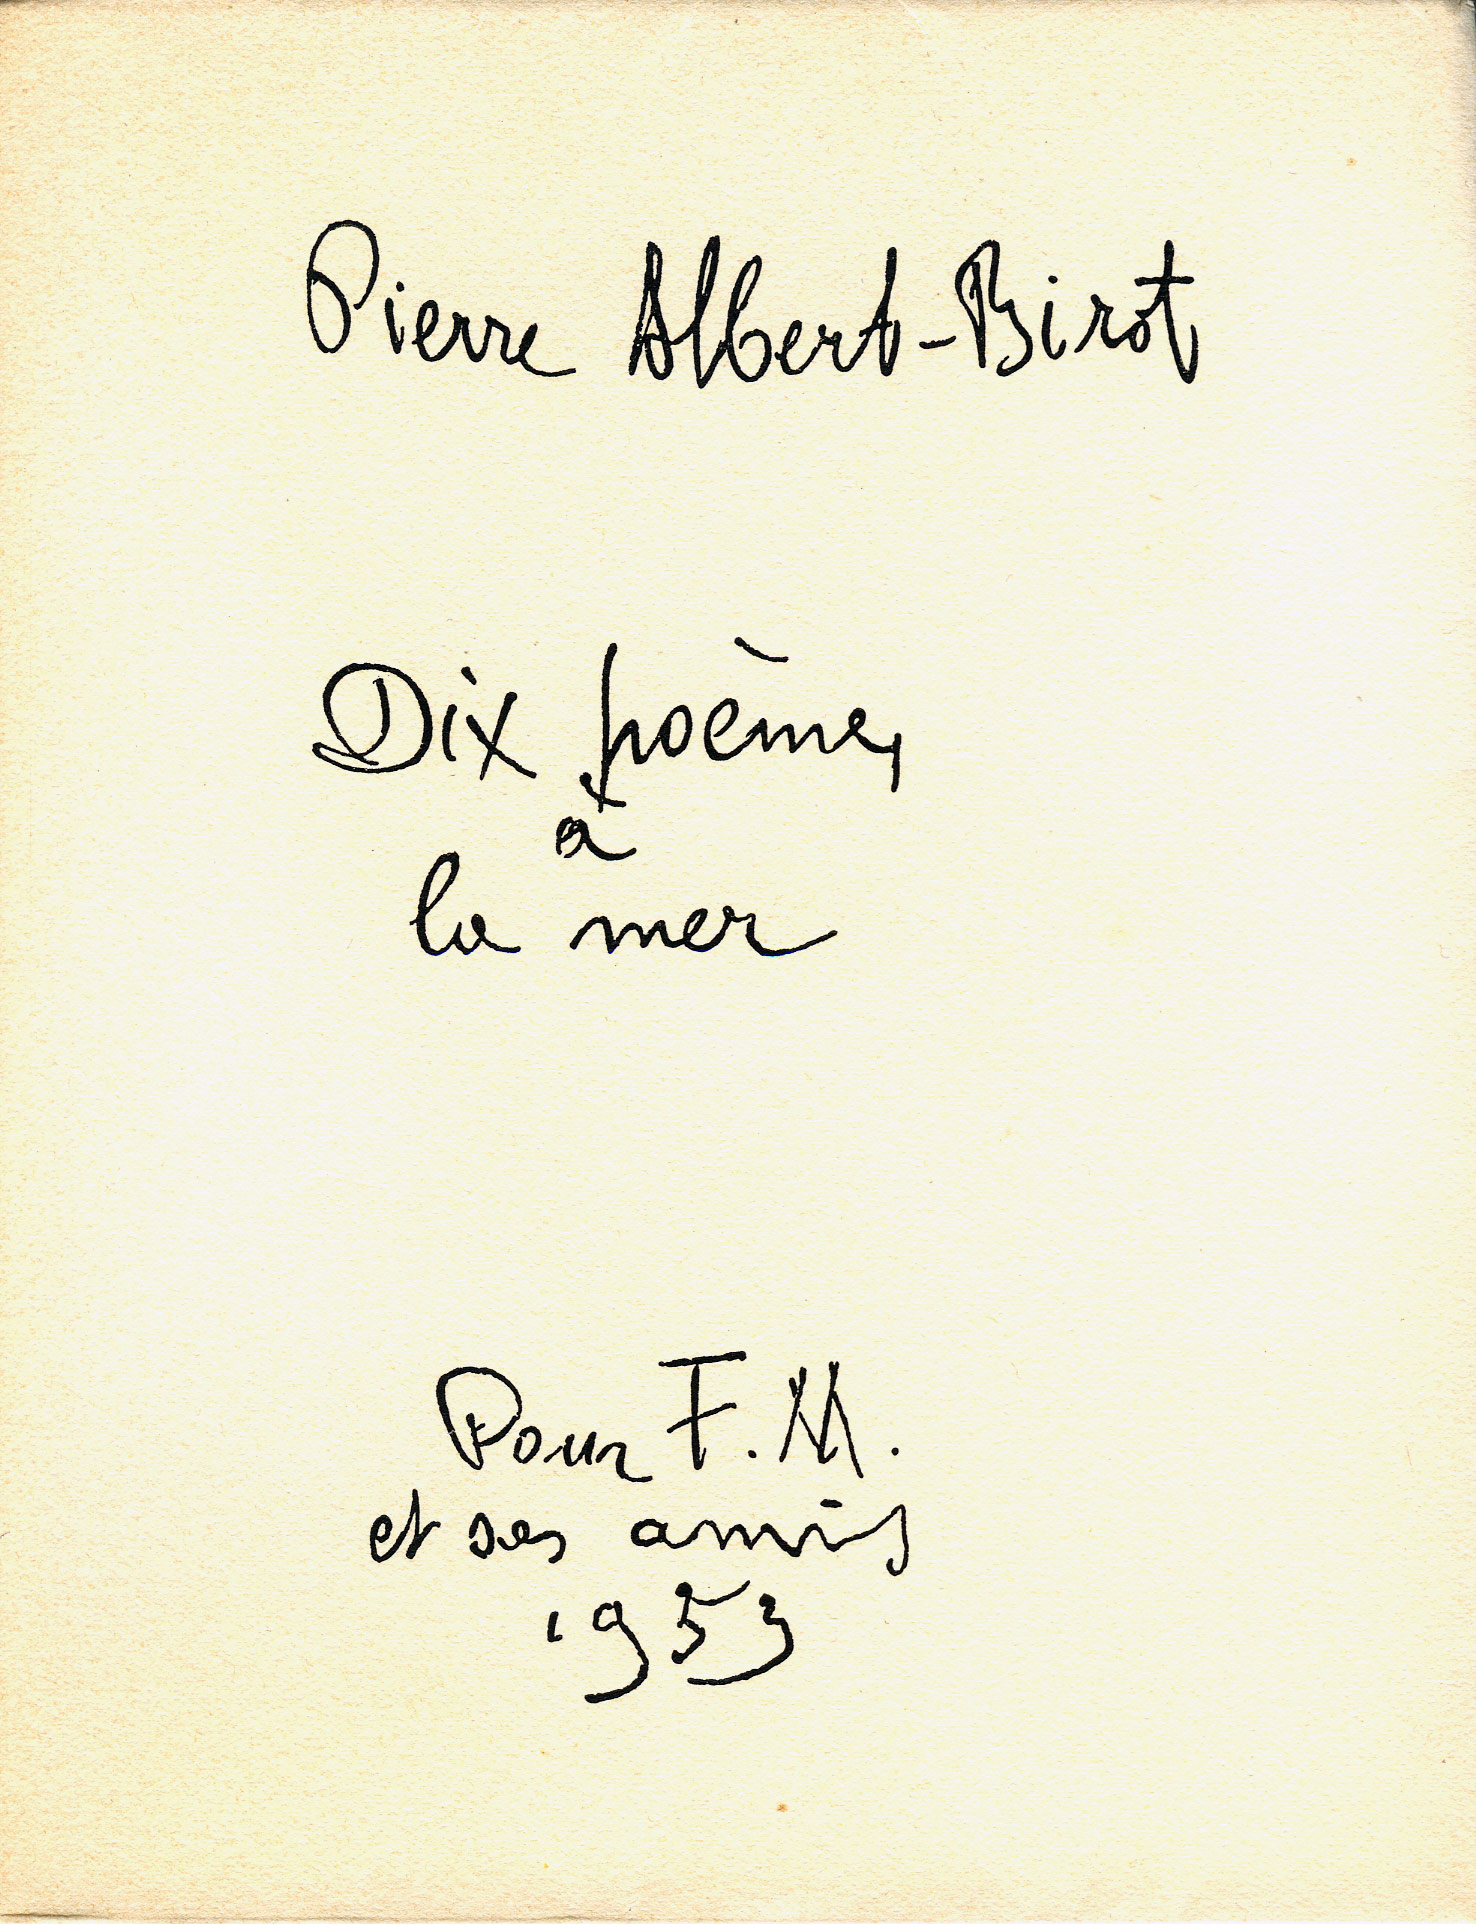 Pierre Albert-Birot
Dix poèmes
à
la mer
Pour F. M.
et ses amis
1953